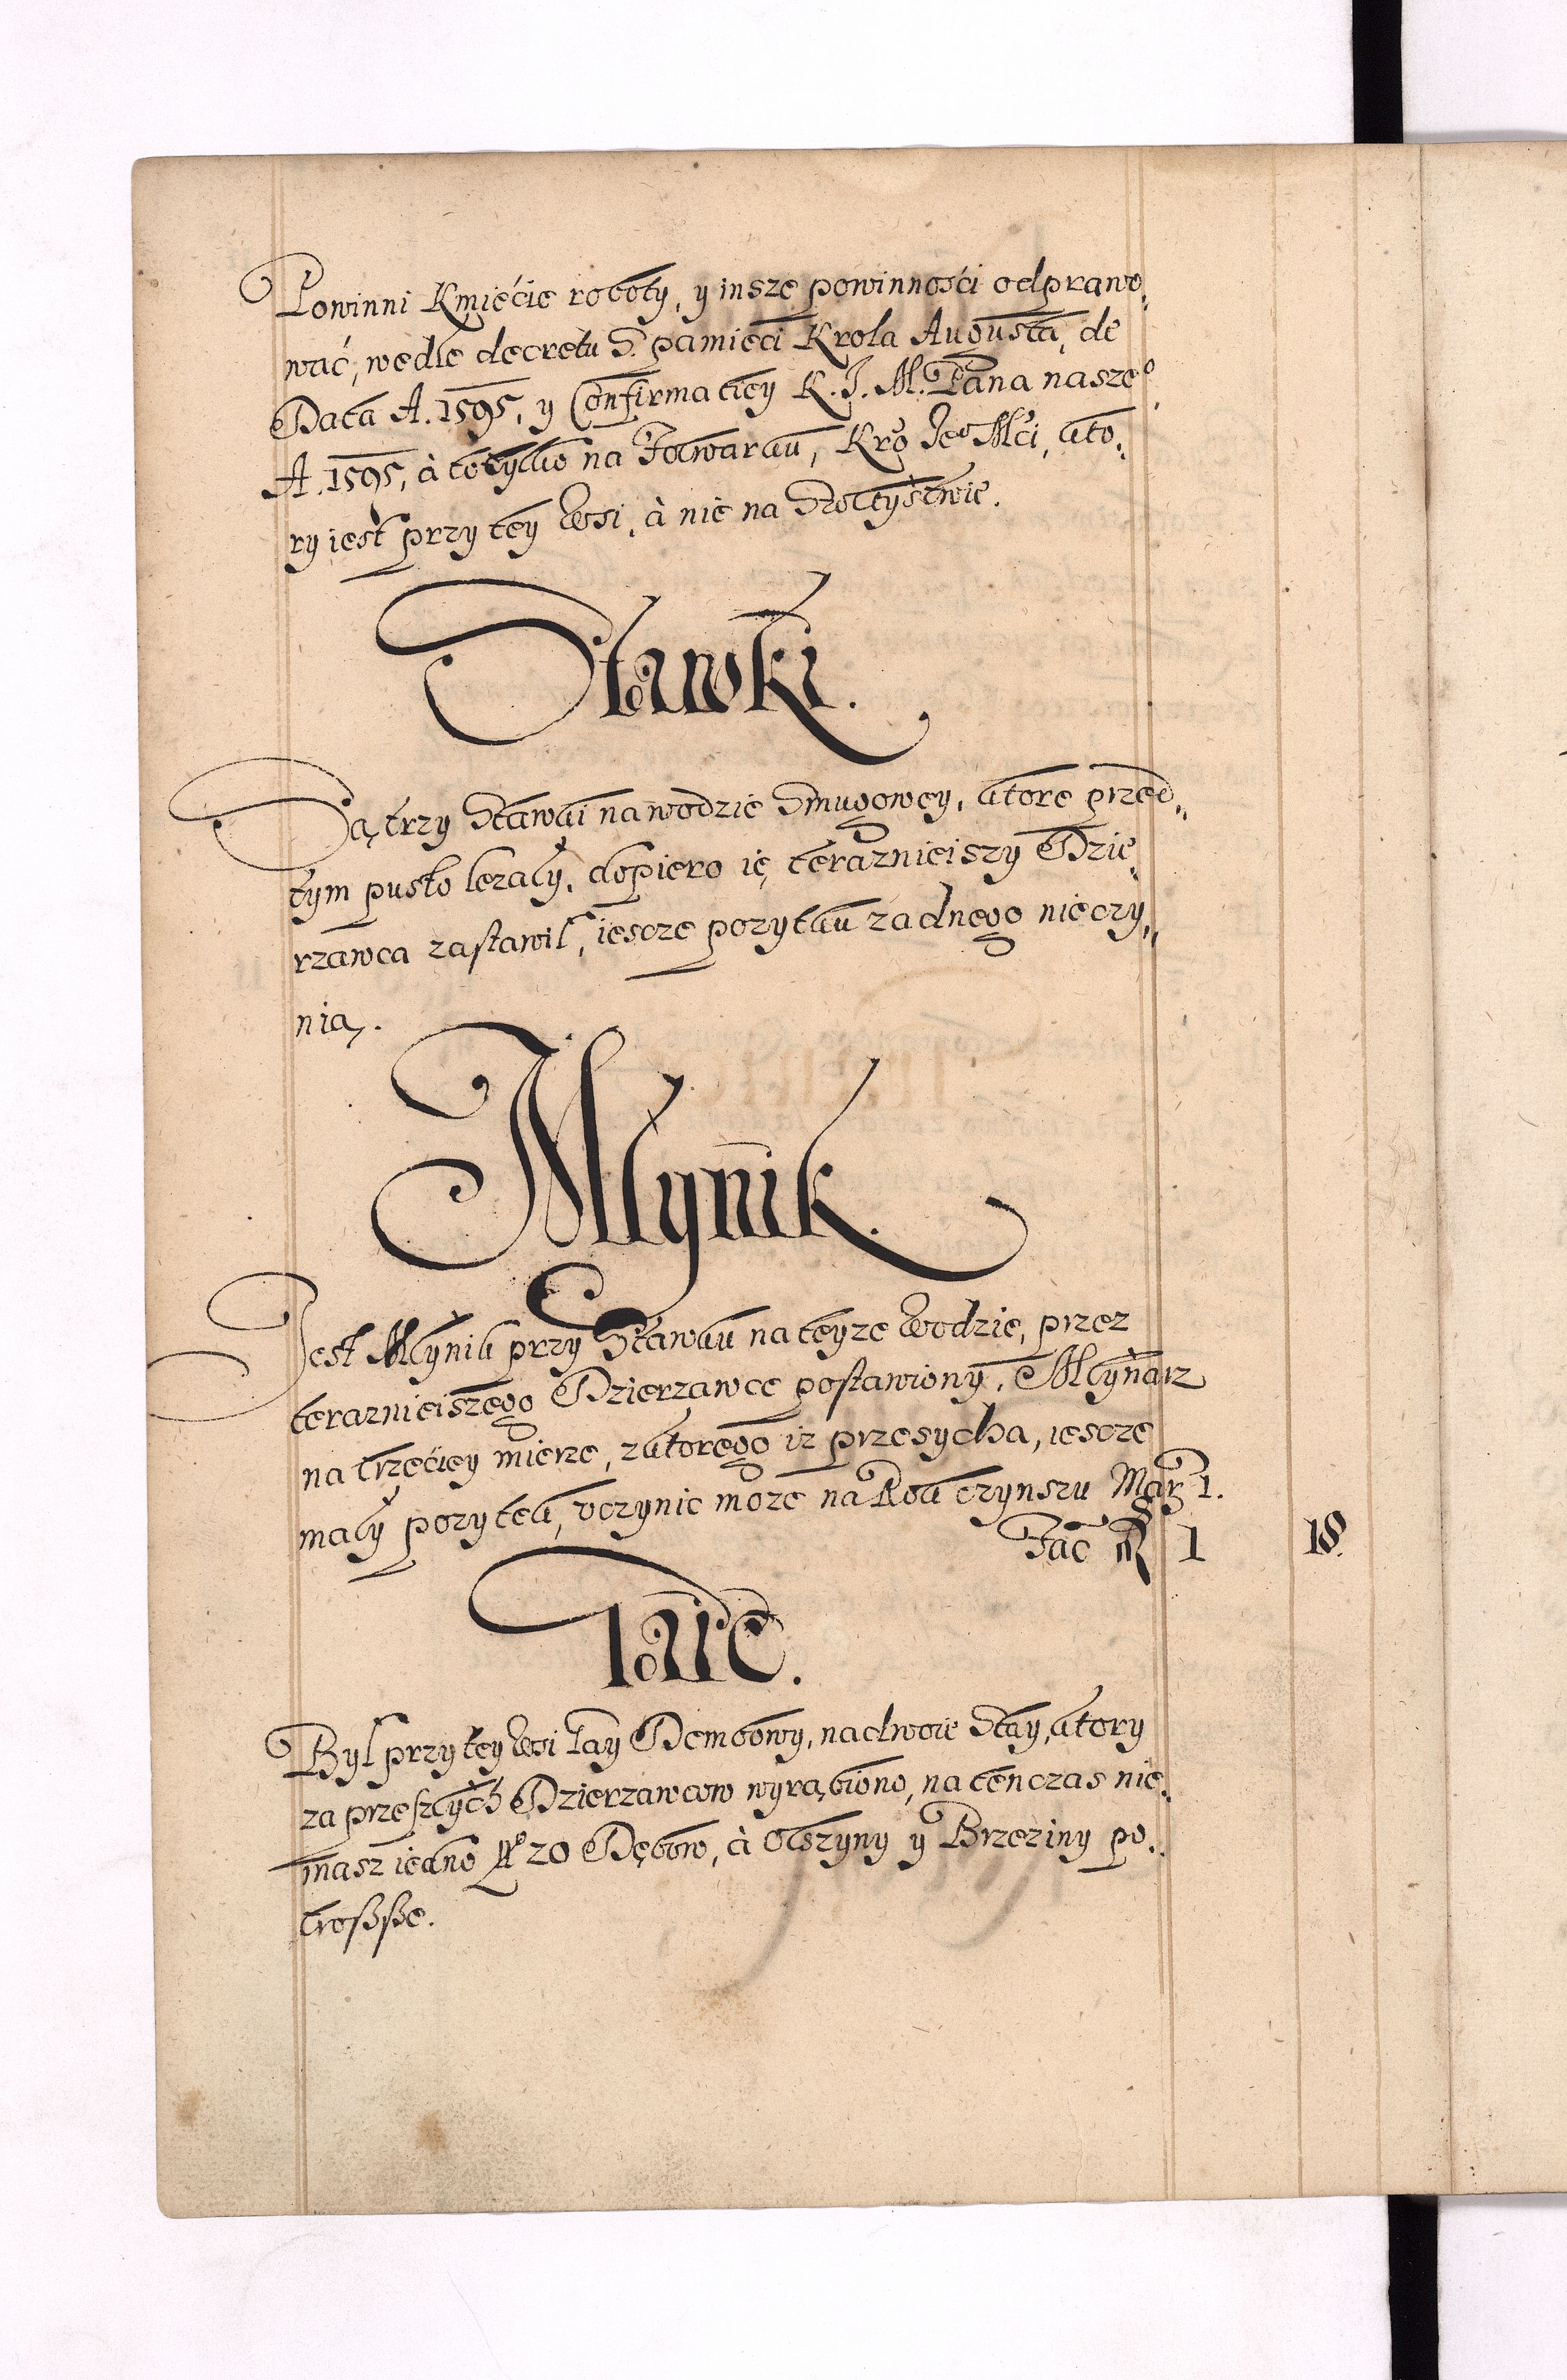 Powinni Kmiećie roboty, y insze powinnośći odprawo,
wać, wedle decretu S. pamieći Krola Augusta, de
Data A. 1595, y Confirmatiey K. J. M. Pana naszeo
A. 1595, à to tylko na Folwarku, Kro Jeo Mći, kto,
ry iest przy tey Wsi, à nie na Szoltystwie.
Stawki.
Są trzy Stawki na wodzie Smugowey, ktore przed,,
tym pusto lezaly, dopiero ie terazniejszy Dzie,
rzawca zastawil, iescze pozytku zadnego nie czy,,
nia.
Mlynik.
Jest Mlynik przy Stawku na teyze Wodzie, przez
teraznieiszego Dzierzawce postawiony, Mlynarz
na trzećiey mierze, z ktorego iz przesycha, iescze
maly pozytek, vczynic moze na Rok czynszu Mar 1.
Fac 1 18.
Laie.
Byl przy tey Wsi Lay Dembowy, na dwoie Stay, ktory
za przeszlych Dzierzawcow wyrąbiono, na ten czas nie,
masz iedno 20 Dębow, à Olszyny y Brzeziny po,
trosze.